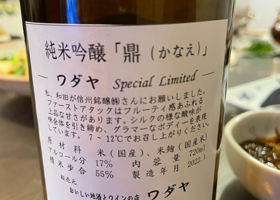 純米吟醸「鼎（かなえ）」
ワダヤ Special Limited
私、和田が信州銘醸㈱さんにお願いしました。
ファーストアタックはフルーティ感あふれる
上品な甘さがあります。シルクの様な酸味が
味全体を引き締め、グラマーなボディーを表現
しています。7～12℃でお召し上がりください。
原材料 米（国産）、米麹（国産米）
アルコール分 17% 内容量 720ml
精米歩合 55% 製造年月 2022.1
販売元
おいしい地酒とワインの店 ワダヤ